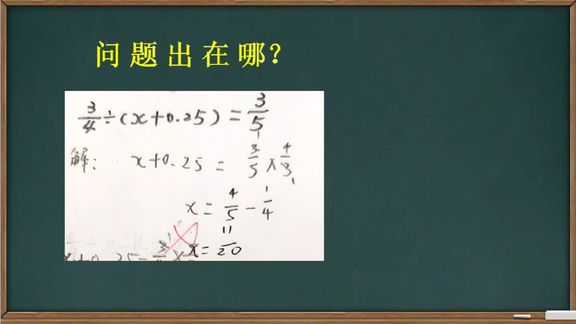 问题出在哪?
3/4÷(x+0.25)=3/5
解: x+0.25=3/5×4/3
x=4/5-1/4
x=11/20